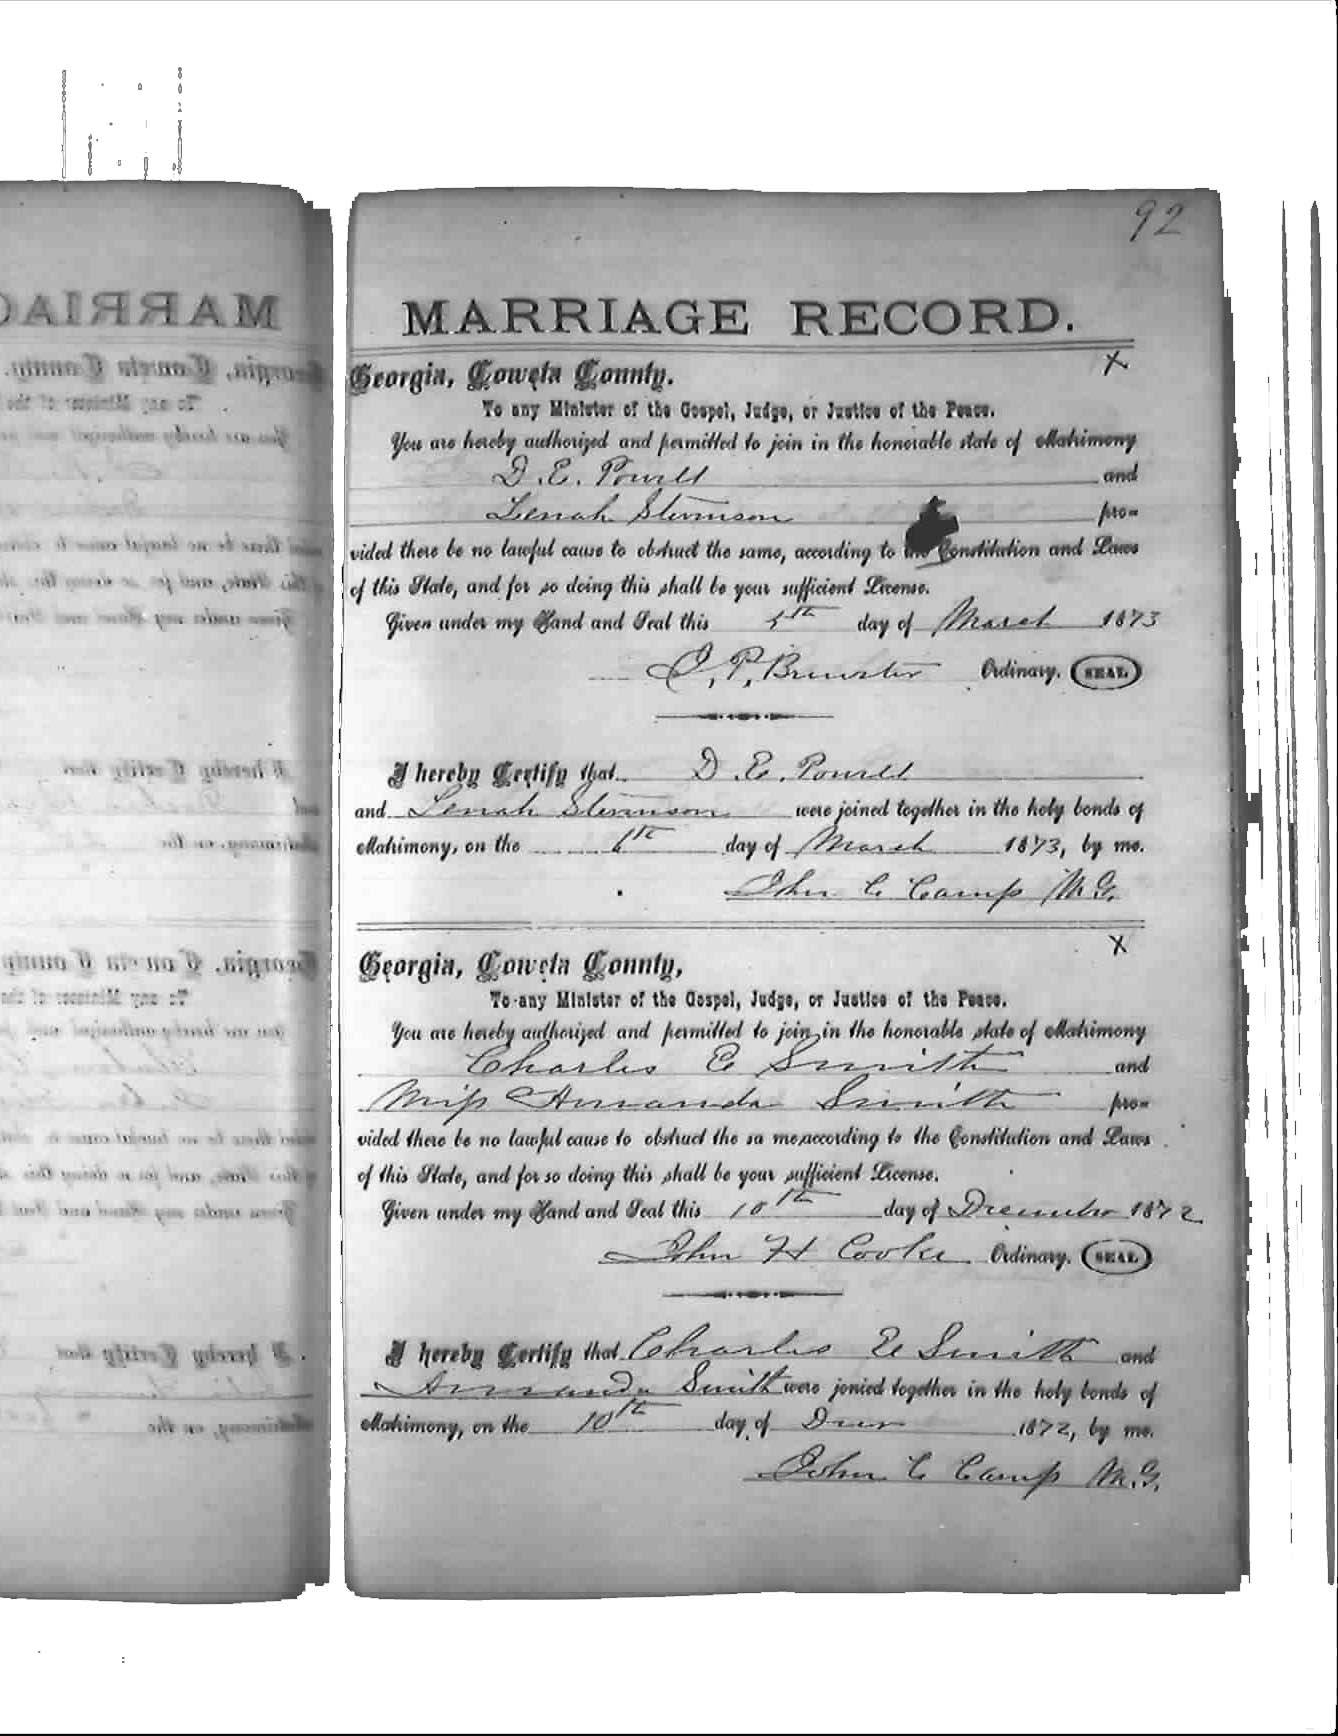 92
MARRIAGE RECORD.
X
Georgia, Coweta County.
To any Minister of the Gospel, Judge, or Justice of the Peace.
You are hereby authorized and permitted to join in the honorable state of Matrimony
D. E. Powell and
Lenah Stevenson pro=
vided there be no lawful cause to obstruct the same, according to the Constitution and Laws
of this State, and for so doing this shall be your sufficient License.
Given under my Hand and Seal this 5th day of March 1873
P. Brewster Ordinary. SEAL
I hereby Certify that D. E. Powell
and Lenah Stevenson were joined together in the holy bonds of
Matrimony, on the 6th day of March 1873, by me.
John C Camp M.G.
X
Georgia, Coweta County,
To any Minister of the Gospel, Judge, or Justice of the Peace.
You are hereby authorized and permitted to join in the honorable state of Matrimony
Charles E Smith and
Miss Amanda Smith pro=
vided there be no lawful cause to obstruct the sa me,according to the Constitution and Laws
of this State, and for so doing this shall be your sufficient License.
Given under my Hand and Seal this 10th day of December 1872
John H Cooke Ordinary. SEAL
I hereby Certify that Charles E Smith and
Amanda Smith were jonied together in the holy bonds of
Matrimony, on the 10th day of Decr 1872, by me.
John C Camp M.G.